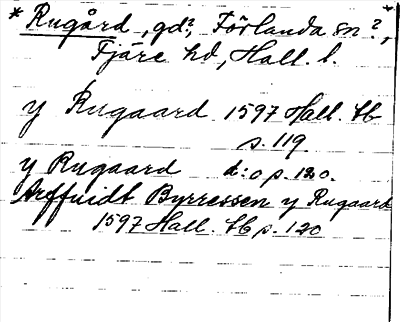 * Rugård, gd?, Förlanda sn?, *
Fjäre hd, Hall. l.
y Rugaard 1597 Hall. tb
s. 119
y Rugaard d:o p. 120.
Arffuidt Byrressen y Rugaard
1597 Hall. tb p. 120